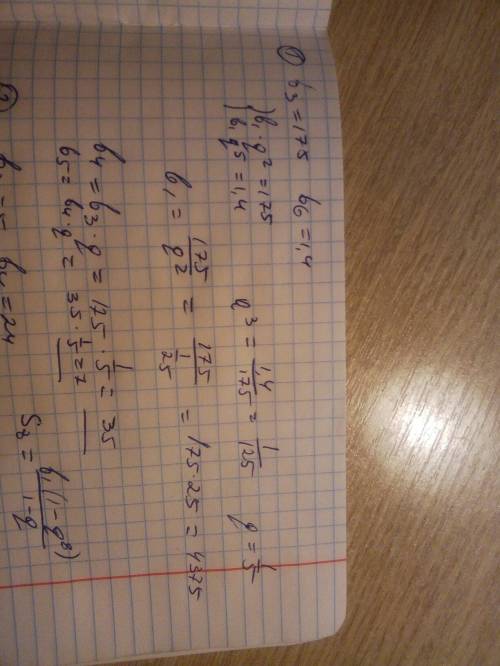 ① b₃ = 175 b₆ = 1,4
{ b₁ · q² = 175
{ b₁ q⁵ = 1,4
q³ = 1,4/175 = 1/125 q = 1/5
b₁ = 175/q² = 175/(1/25) = 175 · 25 = 4375
b₄ = b₃ · q = 175 · 1/5 = 35
b₅ = b₄ · q = 35 · 1/5 = 7
S₈ = b₁(1 - q⁸)/1 - q
= 24